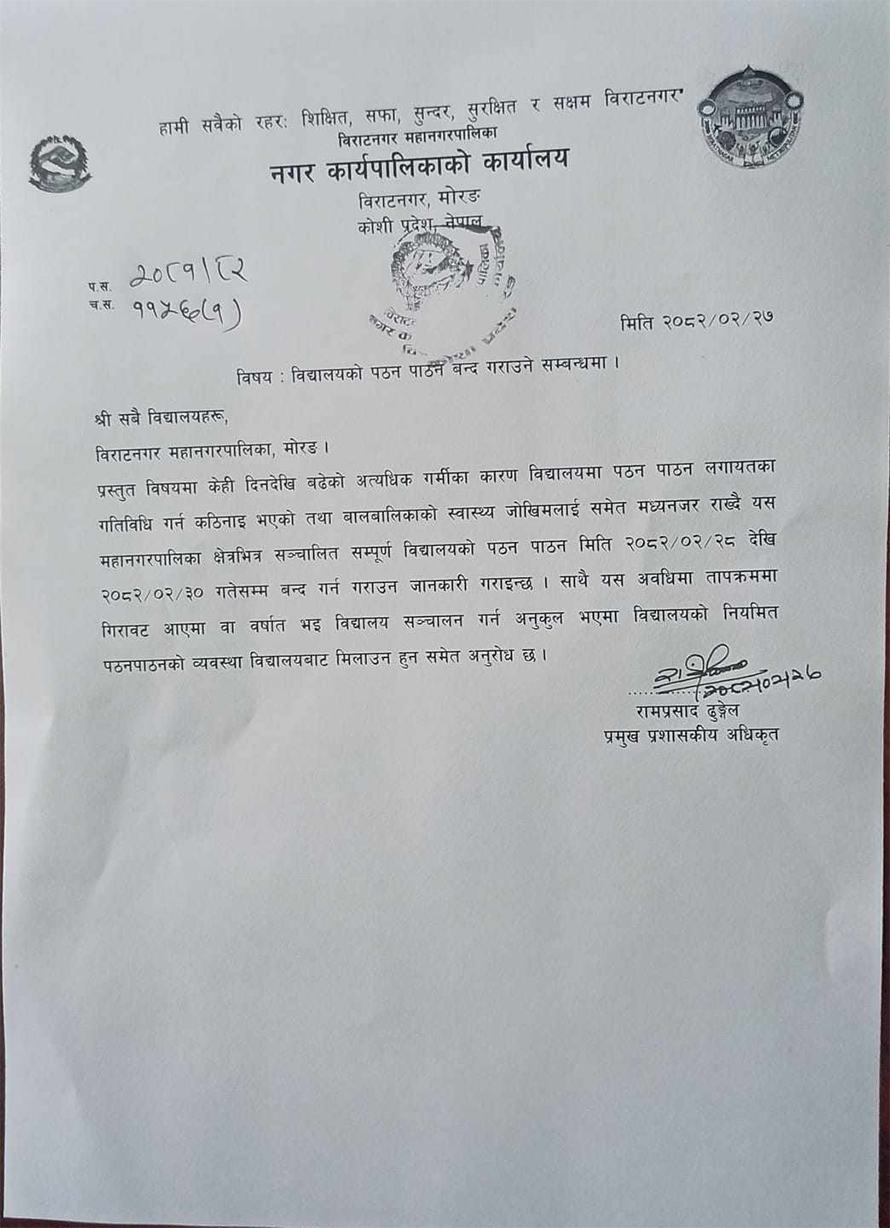 हामी सवैको रहर: शिक्षित, सफा, सुन्दर, सुरक्षित र सक्षम विराटनगर"
विराटनगर महानगरपालिका
नगर कार्यपालिकाको कार्यालय
विराटनगर, मोरङ
कोशी प्रदेश, नेपाल
प.स. २०८१/८२
च.स. ११५६(१)
मिति २०८२/०२/२७
विषय : विद्यालयको पठन पाठन बन्द गराउने सम्बन्धमा ।
श्री सबै विद्यालयहरू,
विराटनगर महानगरपालिका, मोरङ ।
प्रस्तुत विषयमा केही दिनदेखि बढेको अत्यधिक गर्मीका कारण विद्यालयमा पठन पाठन लगायतका
गतिविधि गर्न कठिनाइ भएको तथा बालबालिकाको स्वास्थ्य जोखिमलाई समेत मध्यनजर राख्दै यस
महानगरपालिका क्षेत्रभित्र सञ्चालित सम्पूर्ण विद्यालयको पठन पाठन मिति २०८२/०२/२८ देखि
२०८२/०२/३० गतेसम्म बन्द गर्न गराउन जानकारी गराइन्छ । साथै यस अवधिमा तापक्रममा
गिरावट आएमा वा वर्षात भइ विद्यालय सञ्चालन गर्न अनुकुल भएमा विद्यालयको नियमित
पठनपाठनको व्यवस्था विद्यालयबाट मिलाउन हुन समेत अनुरोध छ ।
रामप्रसाद ढुङ्गेल
प्रमुख प्रशासकीय अधिकृत